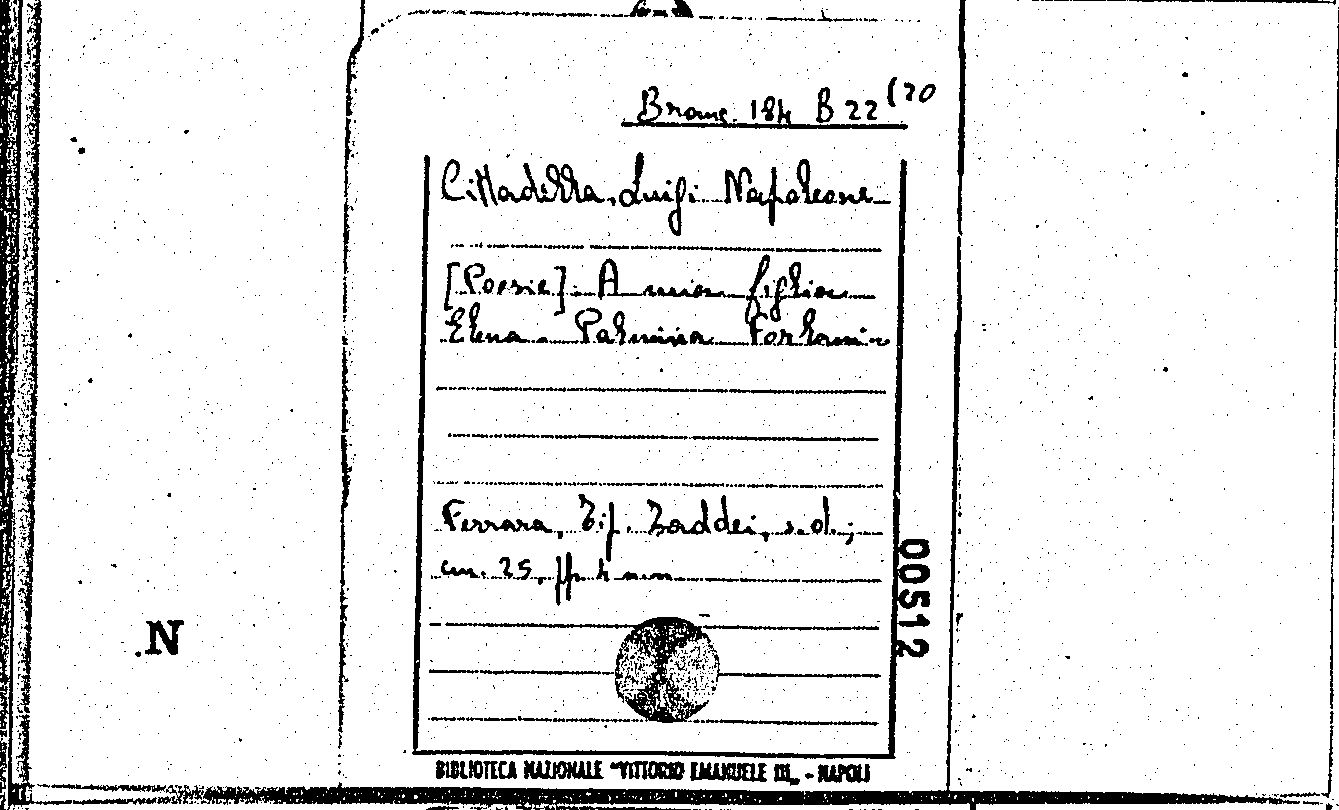 Branc. 184 B 22 (20
Cittadella, Luigi Napoleone
[Poesie]. A mia figlia
Elena. Palmina Forlani.
Ferrara, Tip. Taddei, s.d.;
cm. 25, pp. 4 nnn.
00512
.N
BIBLIOTECA NAZIONALE "VITTORIO EMANUELE III" - NAPOLI